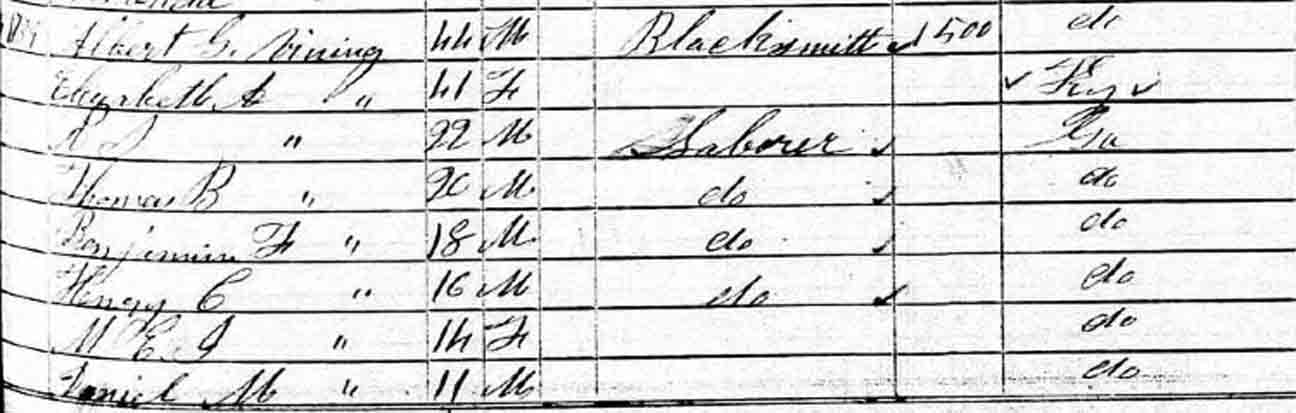 Albert G. Vining 44 M Blacksmith 1500 do
Elizabeth A " 41 F Ky
" 22 M Laborer Ga
Thomas B " 20 M do do
Benjamin F " 18 M do do
Henry C " 16 M do do
M E J " 14 F do
Daniel M " 11 M do